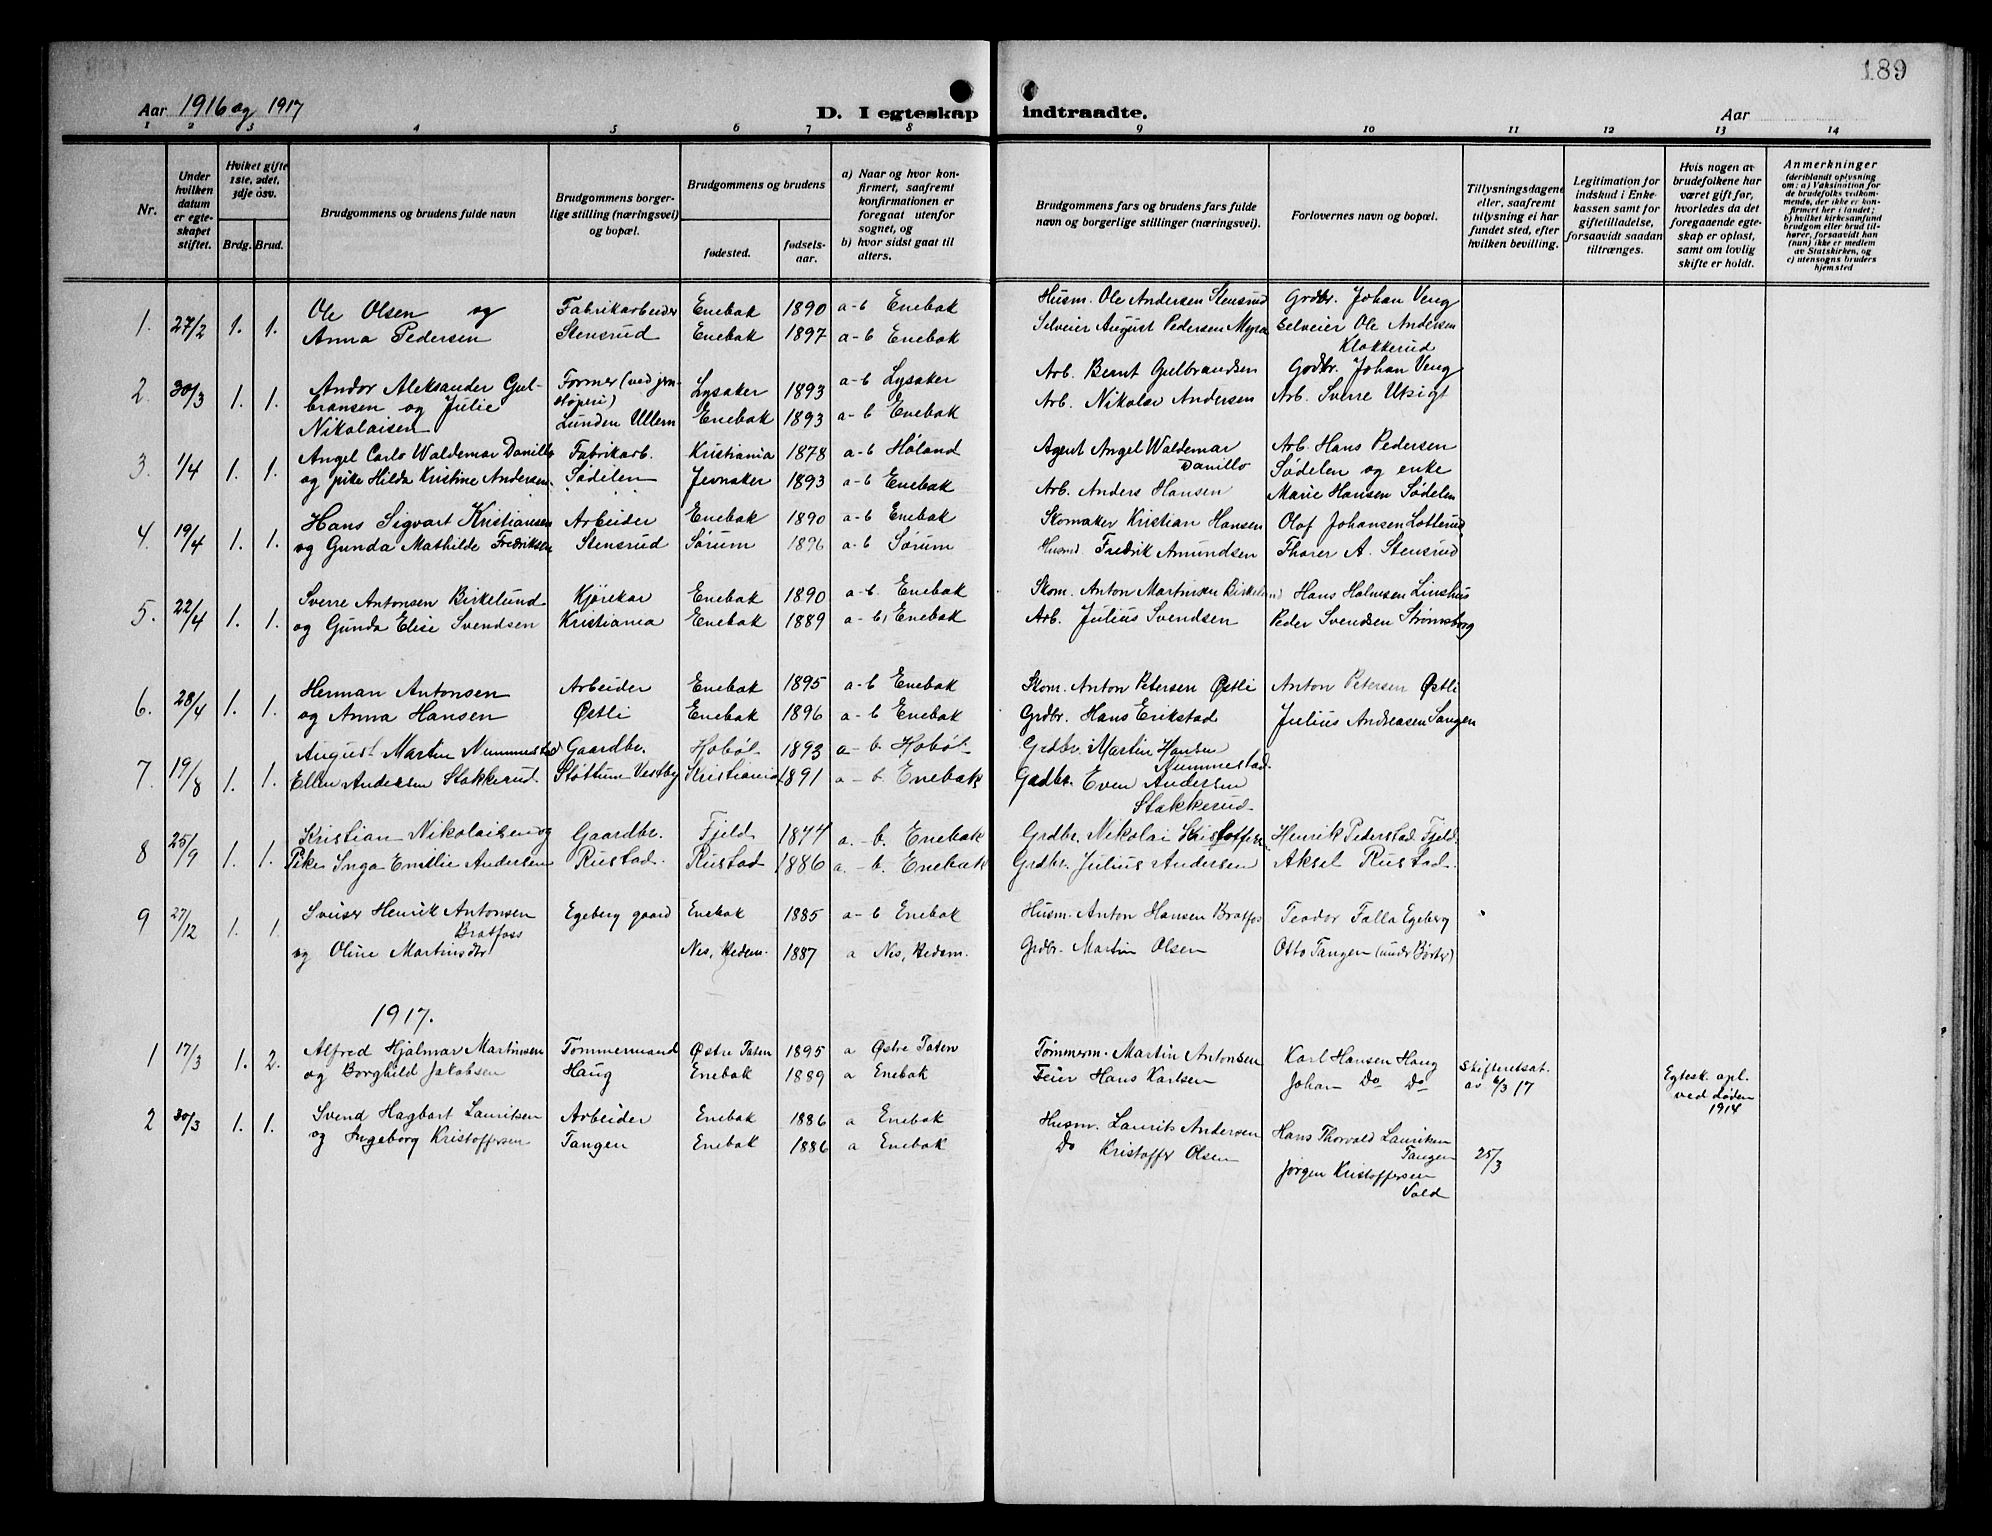 189
Aar 1916 og 1917
D. I egteskap indtraadte.
Aar
1 2 3 4 5 6 7 8 9 10 11 12 13 14
Nr.
Under hvilken datum er egteskapet stiftet.
Hvilket gifte 1ste, 2det, 3dje osv.
Brdg. Brud.
Brudgommens og brudens fulde navn
Brudgommens borgerlige stilling (næringsvei) og bopæl.
Brudgommens og brudens
fødested.
fødselsaar.
a) Naar og hvor konfirmert, saafremt konfirmationen er foregaat utenfor sognet, og
b) hvor sidst gaat til alters.
Brudgommens fars og brudens fars fulde navn og borgerlige stillinger (næringsvei).
Forlovernes navn og bopæl.
Tillysningsdagene eller, saafremt tillysning ei har fundet sted, efter hvilken bevilling.
Legitimation for indskud i Enkekassen samt for giftetilladelse, forsaavidt saadan tiltrænges.
Hvis nogen av brudefolkene har været gift før, hvorledes da det foregaaende egteskap er opløst, samt om lovlig skifte er holdt.
Anmerkninger
(deriblandt oplysning om: a) Vaksination for de brudefolks vedkommende, der ikke er konfirmert her i landet; b) hvilket kirkesamfund brudgom eller brud tilhører, forsaavidt han (hun) ikke er medlem av Statskirken, og c) utensogns bruders hjemsted
1. 27/2 1. 1. Ole Olsen og Fabrikarbeider Enebak 1890 a-b Enebak Husm. Ole Andersen Stensrud Grdbr. Johan Veng
Anna Pedersen Stensrud Enebak 1897 a-b Enebak Selveier August Pedersen Myra Selveier Ole Andersen
Klokkerud
2. 30/3 1. 1. Andor Aleksander Gul- Former (ved jern- Lysaker 1893 a-b Lysaker Arb. Bernt Gulbrandsen Grdbr. Johan Veng
bransen og Julie støperi) Enebak 1893 a-b Enebak Arb. Nikolai Andersen Arb. Sverre Utsigt
Nikolaisen Lunden Ullern
3. 1/4 1. 1. Angel Carlo Waldemar Danillo Fabrikarb. Kristiania 1878 a-b Høland Agent Angel Waldemar Arb. Hans Pedersen
Danillo
og pike Hilda Kristine Andersen. Sødelen Jevnaker 1893 a-b Enebak Arb. Anders Hansen Sødelen og enke
Marie Hansen Sødelen
4. 19/4 1. 1. Hans Sigvart Kristiansen Arbeider Enebak 1890 a-b Enebak Skomaker Kristian Hansen Olaf Johansen Lotterud
og Gunda Mathilde Fredriksen Stensrud Sørum 1896 a-b Sørum Husmd. Fredrik Amundsen Thorer A. Stensrud
5. 22/4 1. 1. Sverre Antonsen Birkelund Kjørekar Enebak 1890 a-b Enebak Skom. Anton Martinsen Hans Halvosen
og Gunda Elise Svendsen Kristiania Enebak 1889 a-b, Enebak Arb. Julius Svendsen Peder Svendsen Strømsborg
6. 28/4 1. 1. Herman Antonsen Arbeider Enebak 1895 a-b Enebak Skom. Anton Petersen Østli Anton Petersen Østli
og Anna Hansen Østli Enebak 1896 a-b Enebak Grdbr. Hans Erikstad Julius Andreasen Tangen
7. 19/8 1. 1. August Martin Nummestad Gaardbr. Hobøl 1893 a-b. Hobøl Grdbr. Martin Hansen
Nummestad.
Ellen Andersen Stakkerud. Støttum Vestby Kristiania 1891 a-b. Enebak Grdbr. Even Andersen
Stakkerud.
8 25/9 1. 1. Kristian Nikolaisen og Gaardbr. Fjeld 1877 a.-b. Enebak Grdbr. Nikolai Kristoffersen Henrik Pederstad Fjeld.
Pike Inga Emilie Andersen Rustad. Rustad 1886 a.-b. Enebak Grdbr. Julius Andersen Aksel Rustad.
9 27/12 1. 1. Sveiser Henrik Antonsen Egeberg gaard Enebak 1885 a-b Enebak Husm. Anton Hansen Bratfos Teodor Falla Egeberg
Bratfoss
og Oline Martinsdtr Nes, Hedem. 1887 a Nes, Hedem. Grdbr. Martin Olsen Otto Tangen (under Børter)
1917.
1 17/3 1. 2. Alfred Hjalmar Martinsen Tømmermand Østre Toten 1895 a Østre Toten Tømmerm. Martin Antonsen Karl Hansen Haug Skifteretsat. Egtesk. opl.
og Borghild Jakobsen Haug Enebak 1889 a Enebak Feier Hans Karlsen Johan Do Do av 6/3 17 ved døden
1914
2 30/3 1. 1. Svend Hagbart Lauritsen Arbeider Enebak 1886 a Enebak Husm. Laurits Andersen Hans Thorvald Lauritsen
Tangen 25/3
og Ingeborg Kristoffersen Tangen Enebak 1886 a Enebak Do Kristoffer Olsen Jørgen Kristoffersen
Vold